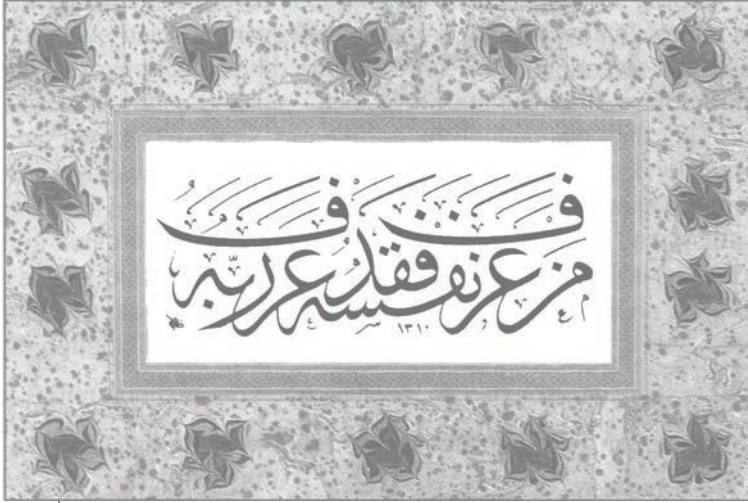 من عرف نفسه فقد عرف ربه
١٣١٠